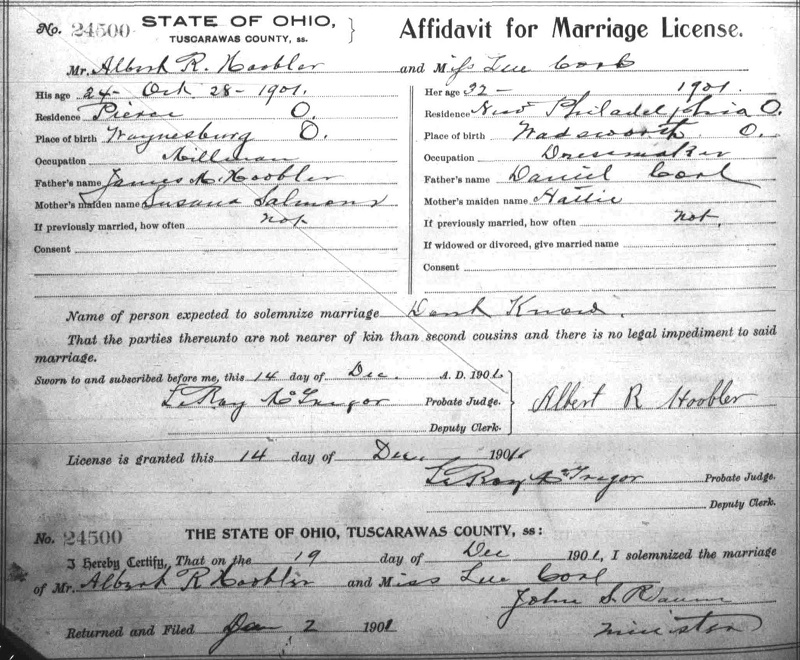 No. 24500 STATE OF OHIO, TUSCARAWAS COUNTY, ss. } Affidavit for Marriage License.
Mr. Albert R. Hoobler and Miss Lue
His age 24 - Oct 28 - 1901.
Residence Pierce O.
Place of birth Waynesburg O.
Occupation Millman
Father's name James M. Hoobler
Mother's maiden name Susana Salmons
If previously married, how often not
Consent
Her age 32 - 1901.
Residence New Philadelphia O.
Place of birth Wadsworth O.
Occupation Dressmaker
Father's name Daniel
Mother's maiden name Hattie
If previously married, how often not.
If widowed or divorced, give married name
Consent
Name of person expected to solemnize marriage Dont Know.
That the parties thereunto are not nearer of kin than second cousins and there is no legal impediment to said
marriage.
Sworn to and subscribed before me, this 14 day of Dec. A. D. 1901.
LeRay McGregor Probate Judge. } Albert R Hoobler
Deputy Clerk.
License is granted this 14 day of Dec. 1901
LeRay McGregor Probate Judge.
Deputy Clerk.
No. 24500 THE STATE OF OHIO, TUSCARAWAS COUNTY, ss:
I Hereby Certify, That on the 19 day of Dec 1901, I solemnized the marriage
of Mr. Albert R Hoobler and Miss Lue
John S.
minister
Returned and Filed Jan 2 190